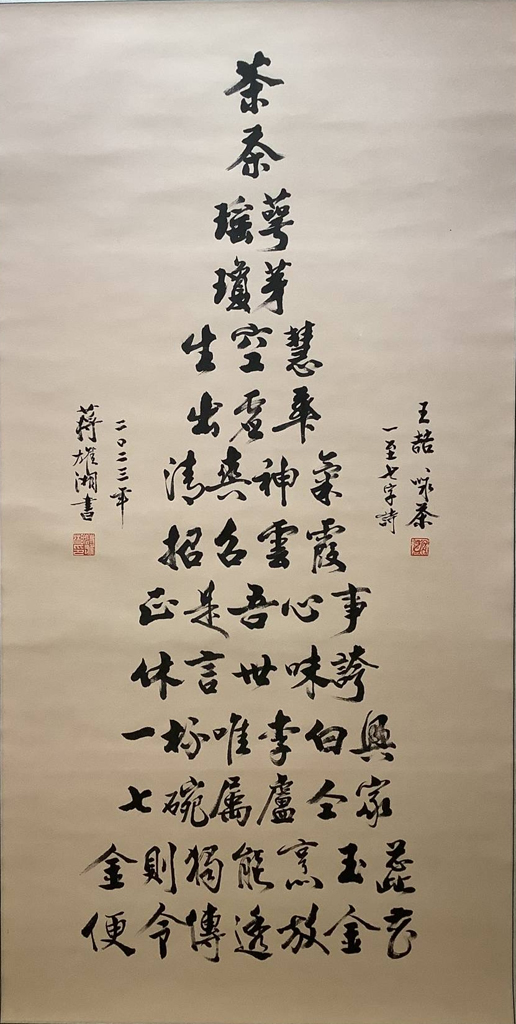 茶
茶
瑤萼
瓊芽
生空慧
出虛華
清爽神氣
招召雲霞
正是吾心事
休言世味誇
一杯唯李白興
七碗属盧仝家
金則獨能烹玉蕊
便令傳透放金花
王喆、咏茶
一至七字詩
二〇二三年
蔣雄湘書